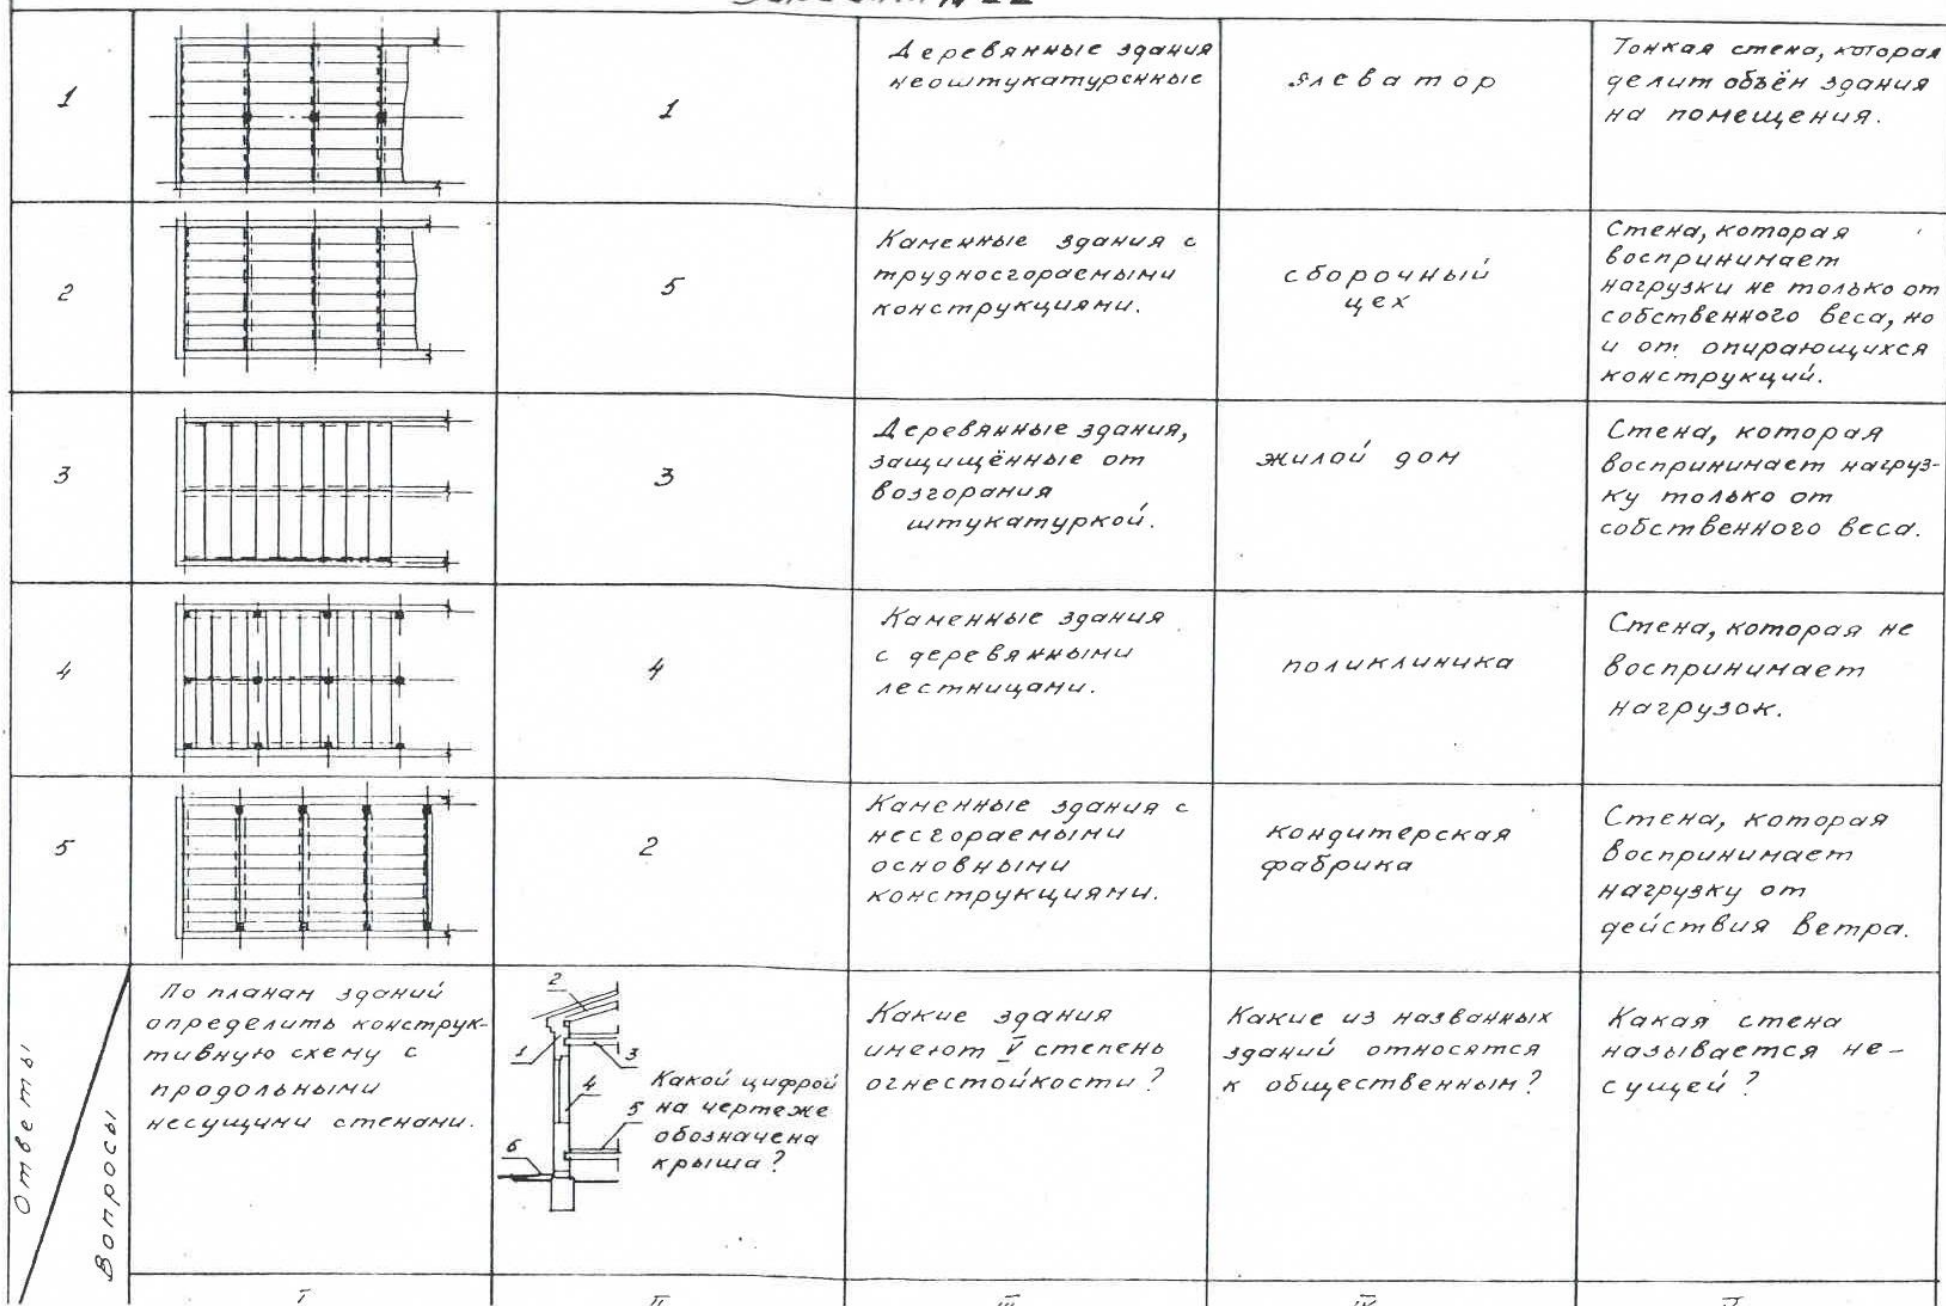 1
1
Деревянные здания
неоштукатуренные
элеватор
Тонкая стена, которая
делит объём здания
на помещения.
2
5
Каменные здания с
трудносгораемыми
конструкциями.
сборочный
цех
Стена, которая
воспринимает
нагрузки не только от
собственного веса, но
и от опирающихся
конструкций.
3
3
Деревянные здания,
защищённые от
возгорания
штукатуркой.
жилой дом
Стена, которая
воспринимает нагруз-
ку только от
собственного веса.
4
4
Каменные здания
с деревянными
лестницами.
поликлиника
Стена, которая не
воспринимает
нагрузок.
5
2
Каменные здания с
несгораемыми
основными
конструкциями.
кондитерская
фабрика
Стена, которая
воспринимает
нагрузку от
действия ветра.
Ответы
Вопросы
По планам зданий
определить конструк-
тивную схему с
продольными
несущими стенами.
2
1
3
4
5
6
Какой цифрой
на чертеже
обозначена
крыша?
Какие здания
имеют V степень
огнестойкости?
Какие из названных
зданий относятся
к общественным?
Какая стена
называется не-
сущей?
I
II
III
IV
V